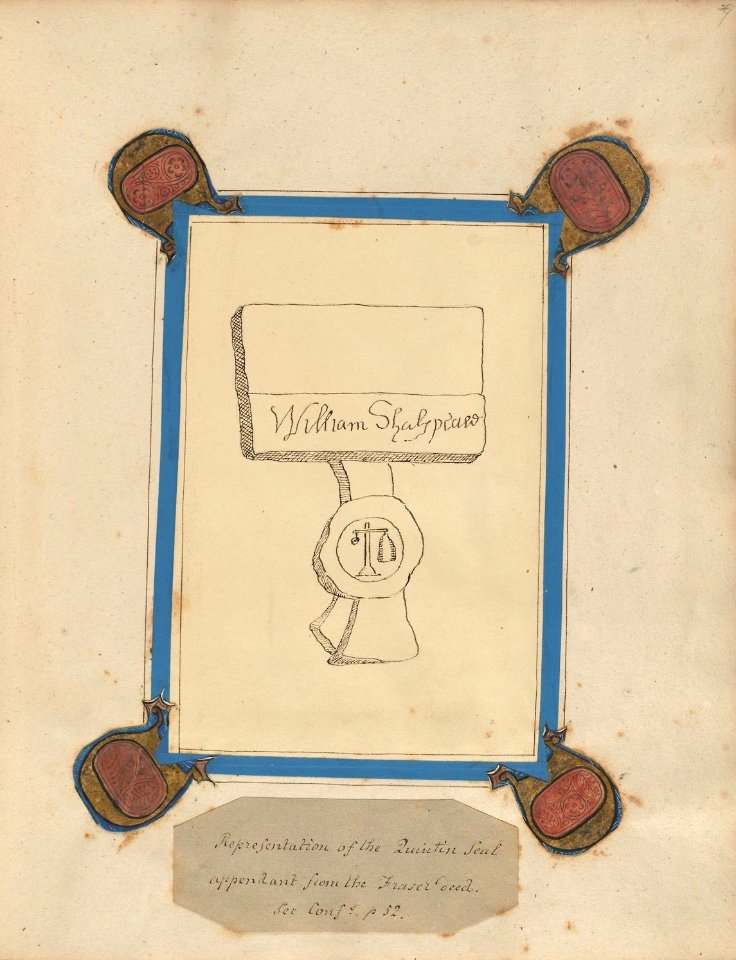 William Shakspeare
Representation of the Quintin Seal
appendant from the Fraser deed.
See Conf.s p 52.